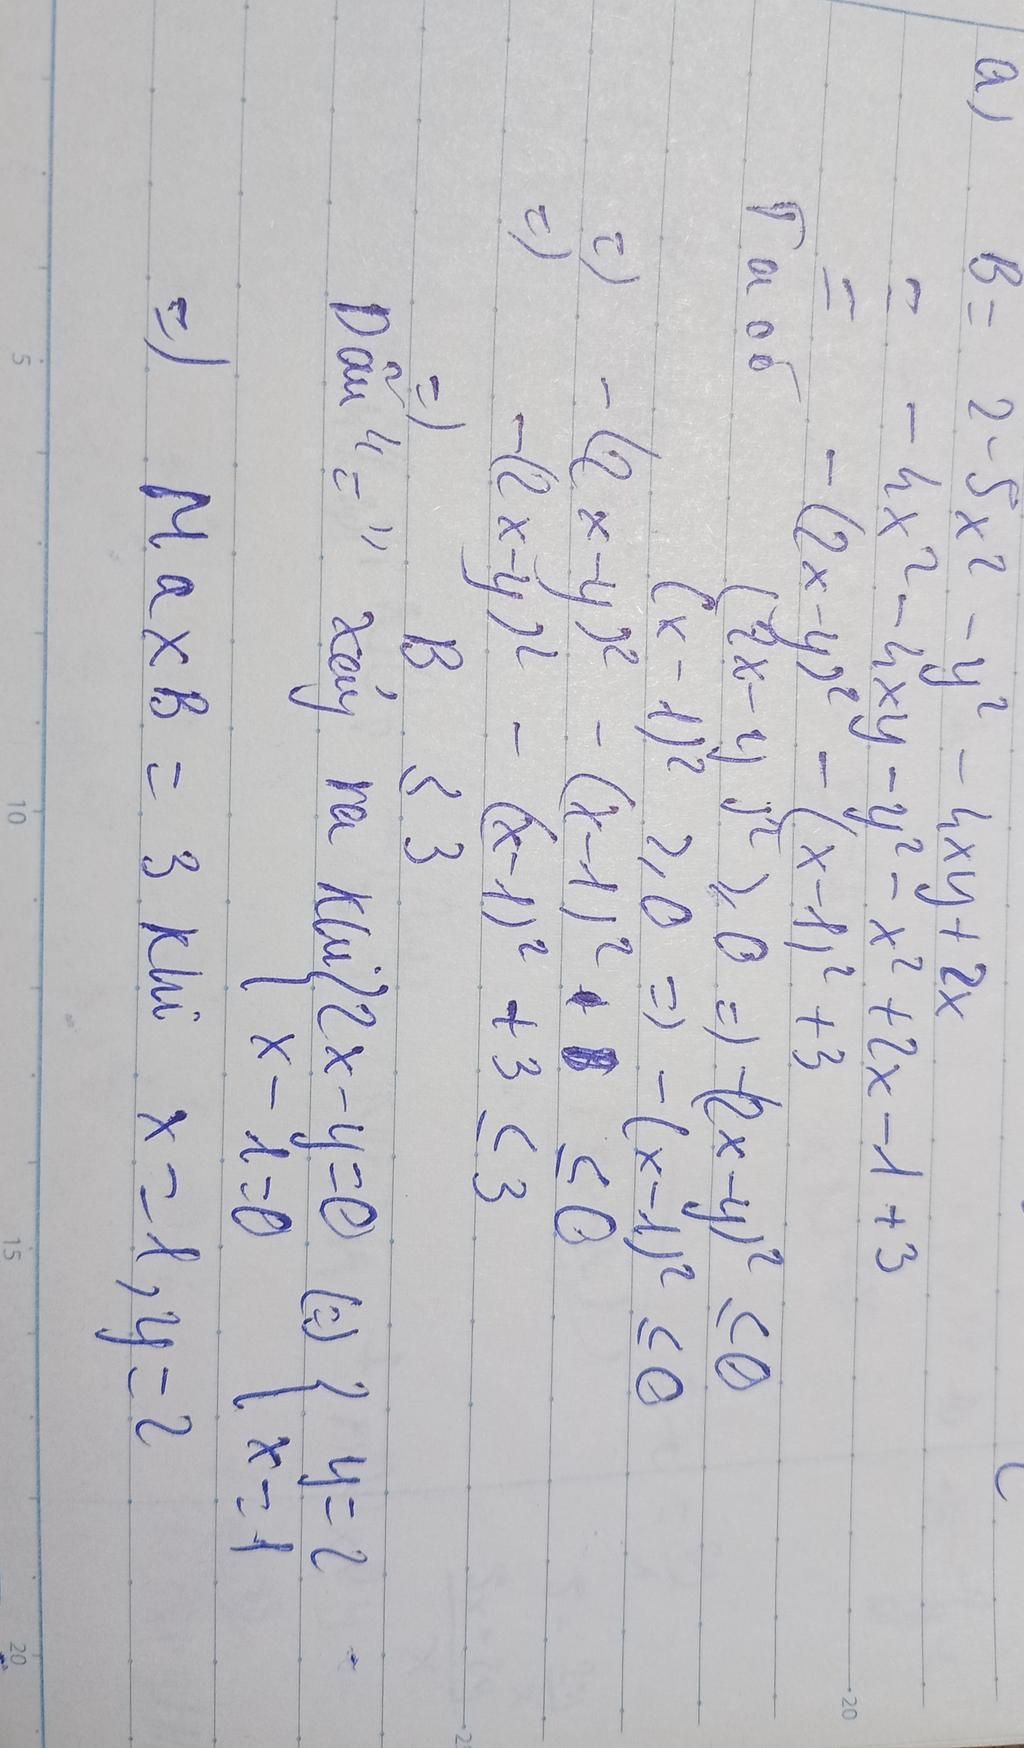 a) B = 2 - 5x² - y² - 4xy + 2x
= - 4x² - 4xy - y² - x² + 2x - 1 + 3
= - (2x - y)² - (x - 1)² + 3
Ta có (2x - y)² ≥ 0 => - (2x - y)² ≤ 0
(x - 1)² ≥ 0 => - (x - 1)² ≤ 0
=) - (2x - y)² - (x - 1)² + ≤ 0
=) - (2x - y)² - (x - 1)² + 3 ≤ 3
=) B ≤ 3
Dấu "=" xảy ra khi { 2x - y = 0 (=) { y = 2
x - 1 = 0 { x = 1
=) Max B = 3 khi x = 1, y = 2
5
10
15
20
20